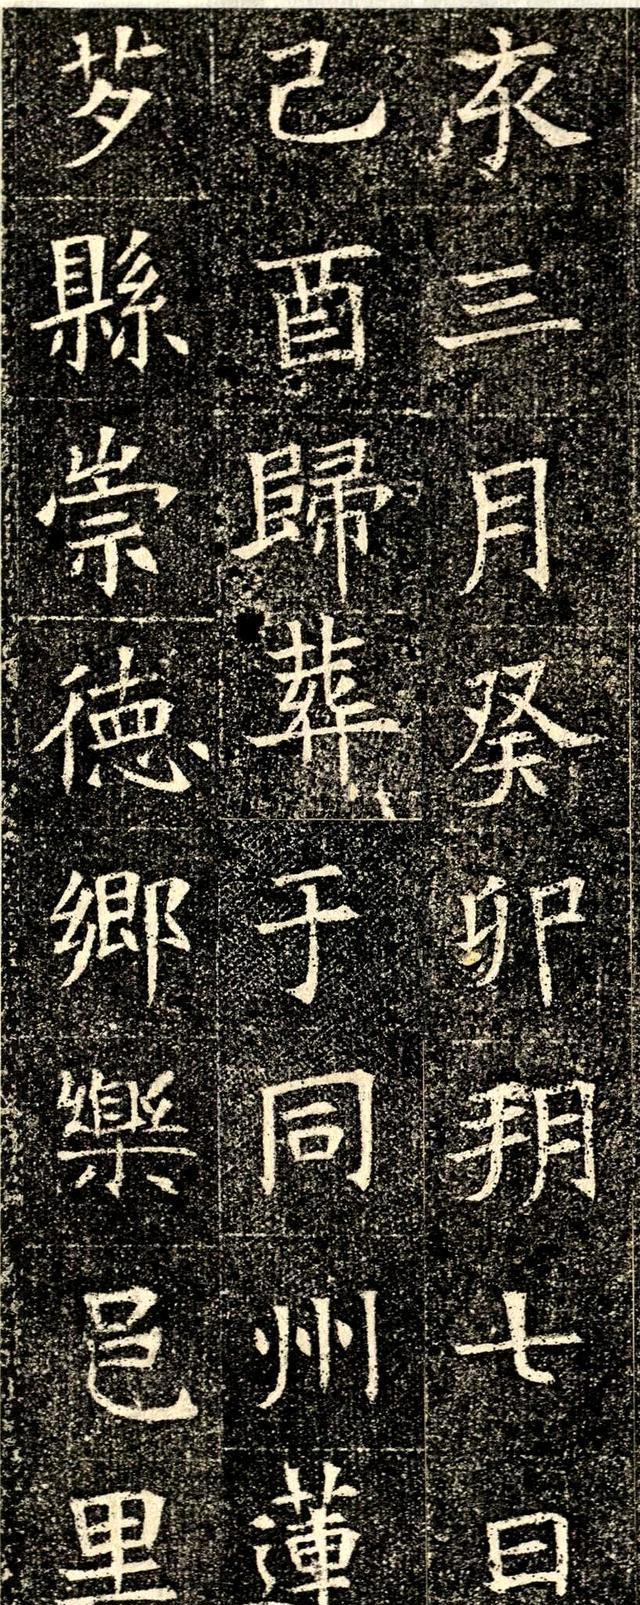 亥三月癸卯朔七日
己酉歸葬于同州蓮
芍縣崇德鄉樂邑里